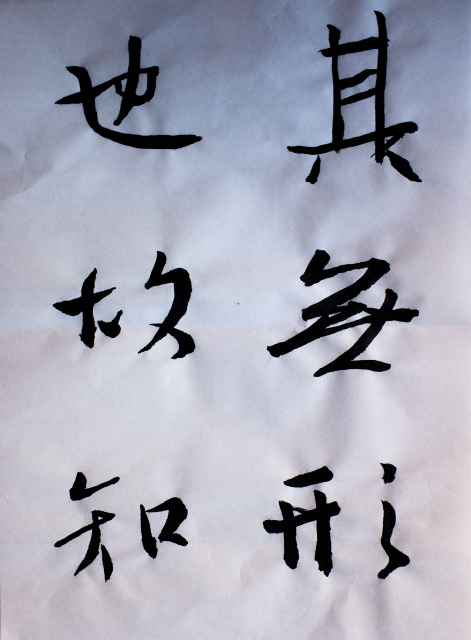 其無形
也故知